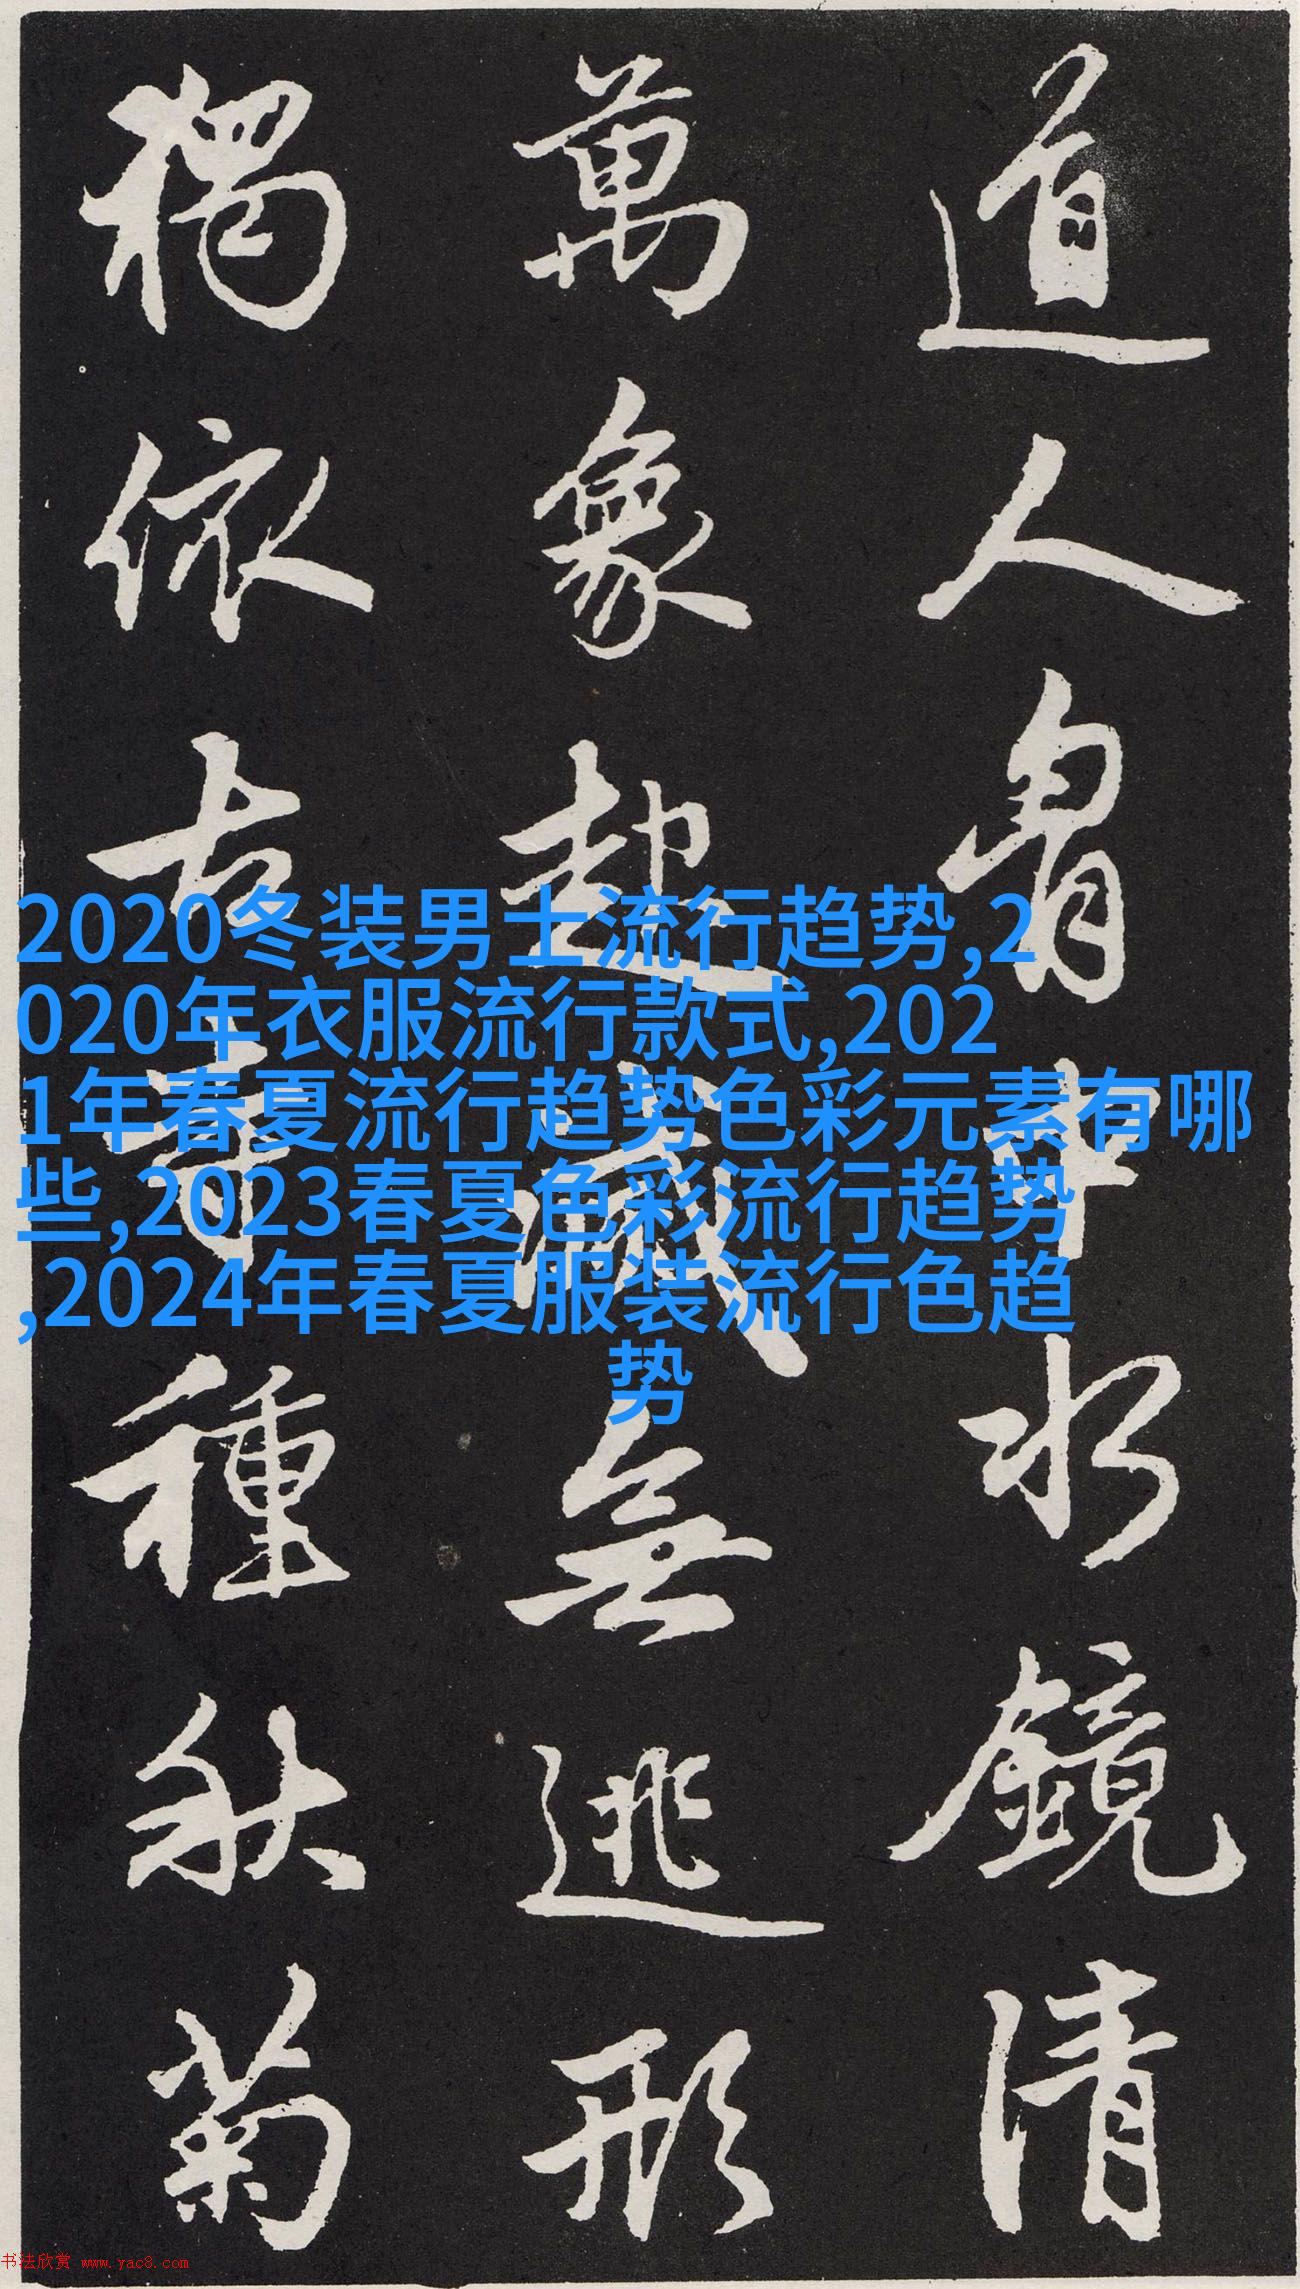 道人胷中水鏡清
萬象起滅無逃形
獨依古寺種秋菊
2020冬装男士流行趋势,2
020年衣服流行款式,202
1年春夏流行趋势色彩元素有哪
些,2023春夏色彩流行趋势
,2024年春夏服装流行色趋
势
书法欣赏 www.yac8.com